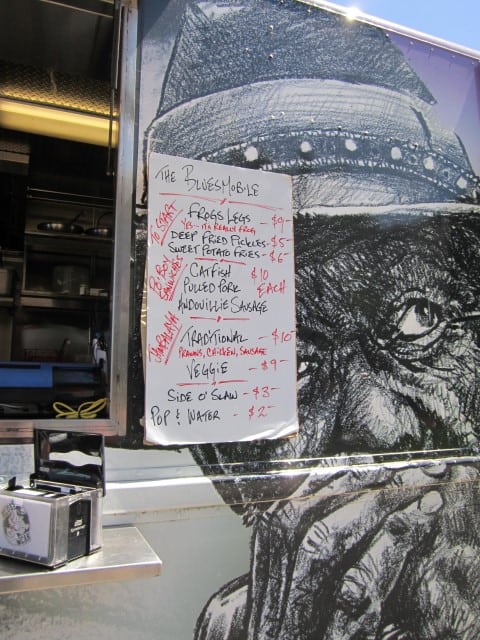 THE BLUESMOBILE
TO START
FROGS LEGS - $9-
YES... IT'S REALLY FROG
DEEP FRIED PICKLES - $5-
SWEET POTATO FRIES - $6-
PO' BOY SANDWICHES
CATFISH $10
PULLED PORK EACH
ANDOUILLIE SAUSAGE
JAMBALAYA
TRADITIONAL - $10-
PRAWNS, CHICKEN, SAUSAGE
VEGGIE - $9-
SIDE O' SLAW - $3-
POP & WATER - $2-